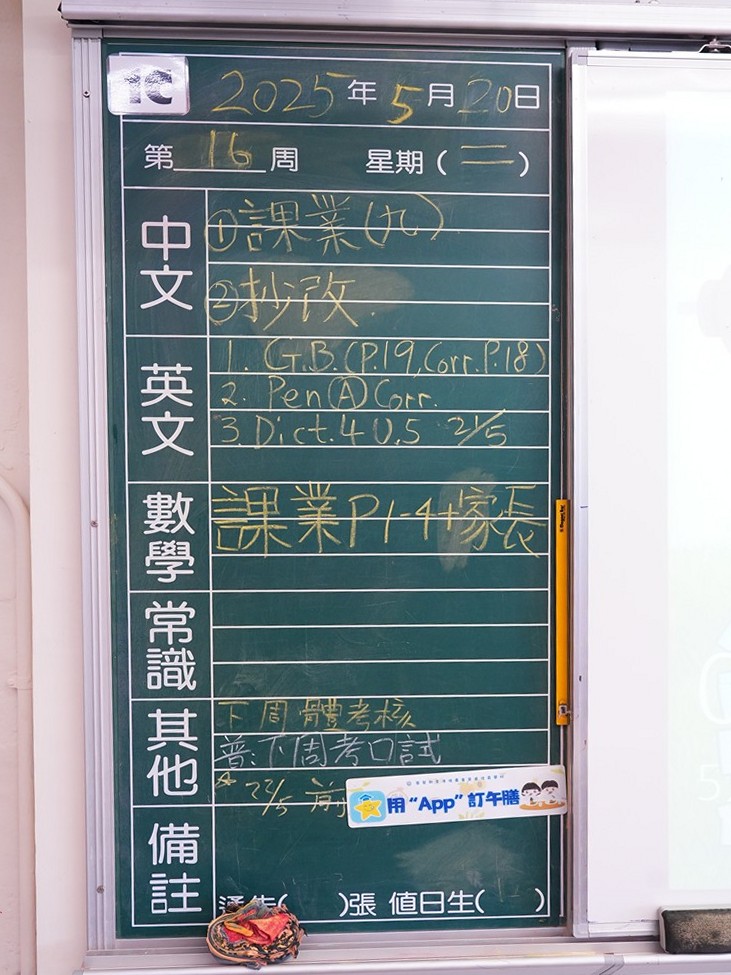 1C
2025年5月20日
第16周 星期(二)
中文
①課業(九)
②抄改.
英文
1. G.B.(P.19, Corr.P.18)
2. Pen Ⓐ Corr.
3. Dict. 4 U.5 21/5
數學
課業P1-4+家長
常識
其他
下周體考核
普:下周考口試
☆ 22/5 前
用 “App” 訂午膳
備註
通告( )張 值日生( )